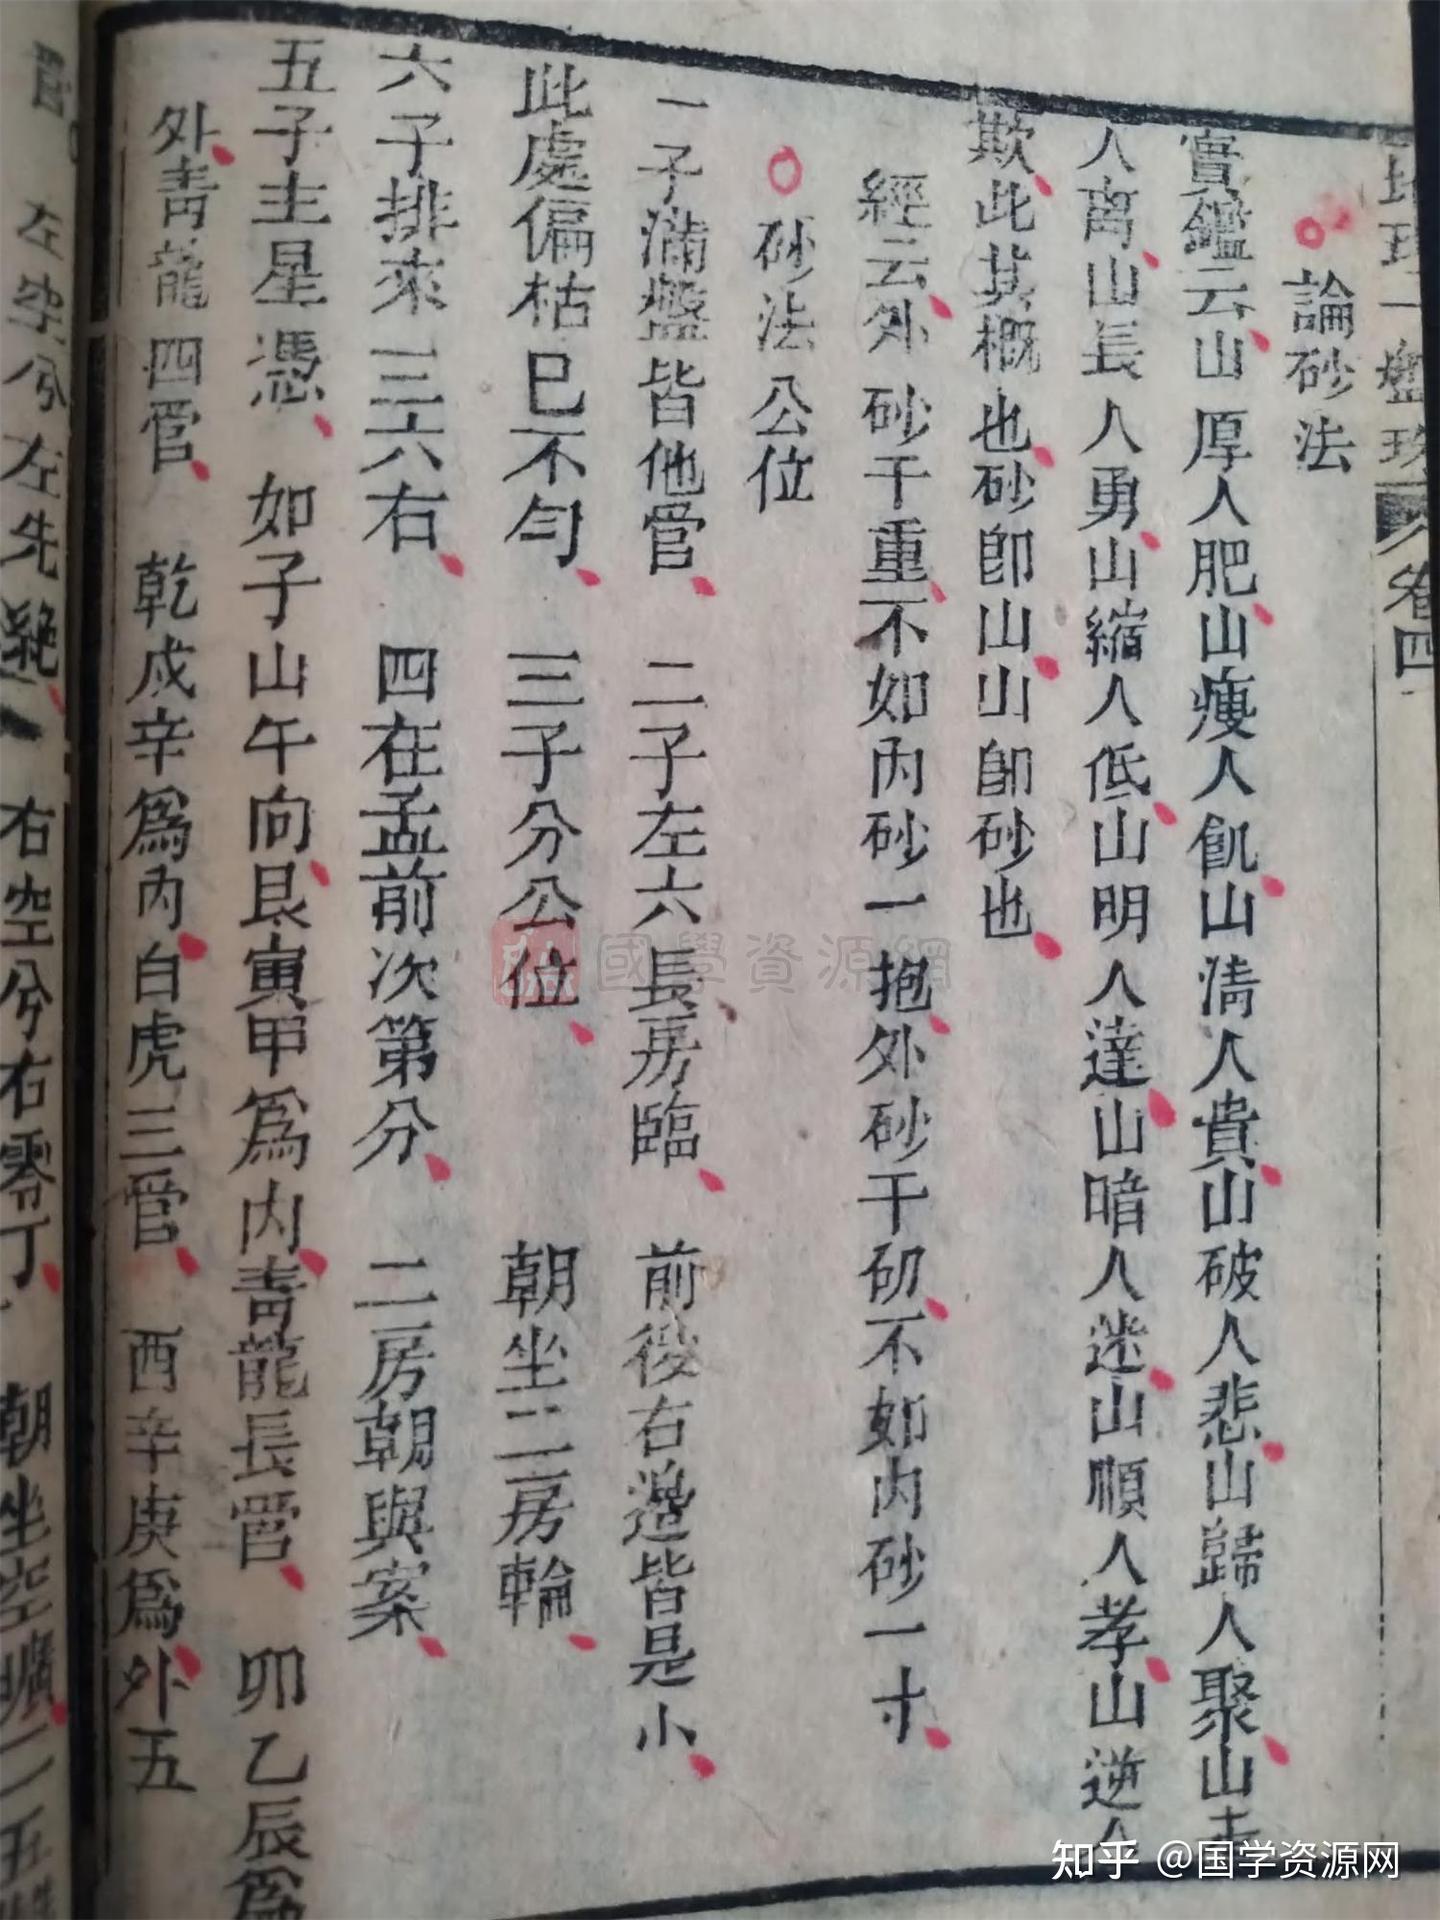 地理一盤珠 卷四
論砂法
寶鑑云山厚人肥山瘦人飢山清人貴山破人悲山歸人聚山走
人离山長人勇山縮人低山明人達山暗人迷山順人孝山逆人
欺此其概也砂卽山山卽砂也
經云外砂千重不如內砂一抱外砂千仞不如內砂一寸
砂法公位
一子滿盤皆他管 二子左六長房臨 前後右邉皆是小
此處偏枯巳不勻 三子分公位 朝坐二房輪
六子排來三六右 四在孟前次第分 二房朝與案
五子主星憑 如子山午向艮寅甲爲內青龍長管 卯乙辰爲
外青龍四管 乾戍辛爲內白虎三管 西辛庚爲外五
左空兮左先絕 右空兮右零丁 朝坐空曠二五
國學資源網
知乎 @国学资源网